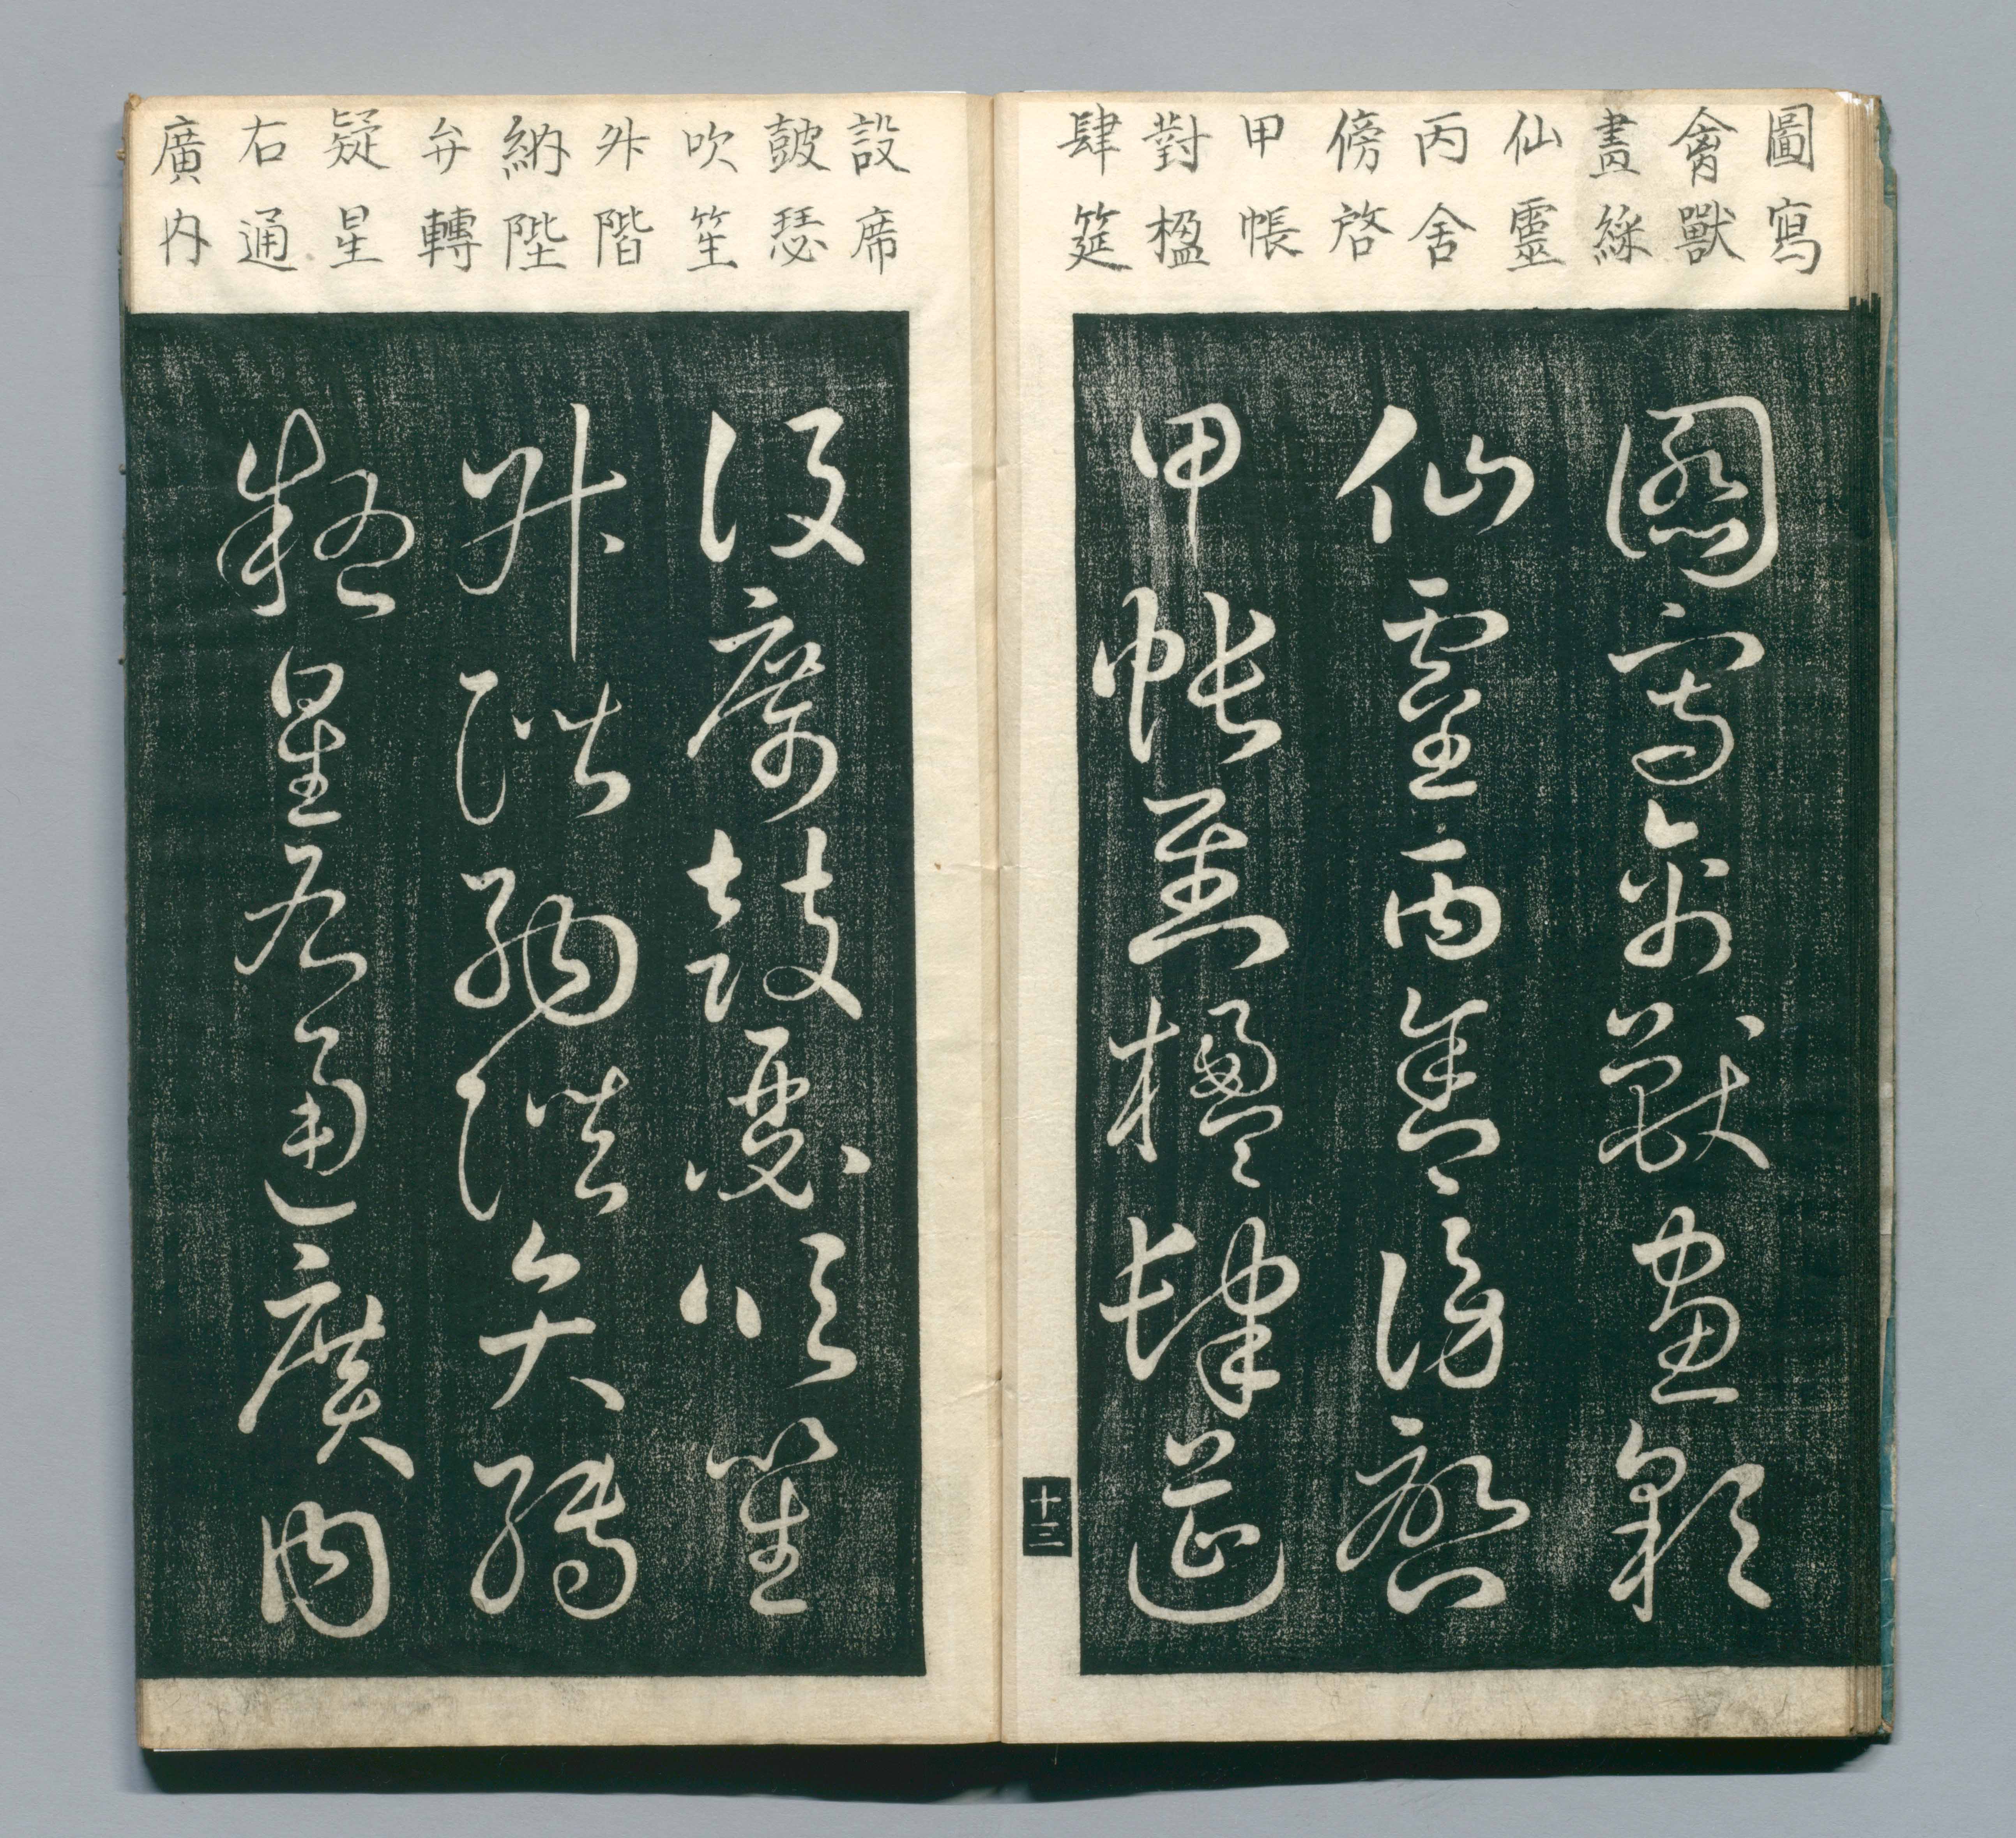 圖寫
禽獸
畫綵
仙靈
丙舍
傍啓
甲帳
對楹
肆筵
圖寫禽獸畫綵
仙靈丙舍傍啓
甲帳對楹肆筵
十三
設席
皷瑟
吹笙
升階
納陛
弁轉
疑星
右通
廣内
設席鼓瑟吹笙
升階納陛弁轉
疑星右通廣内